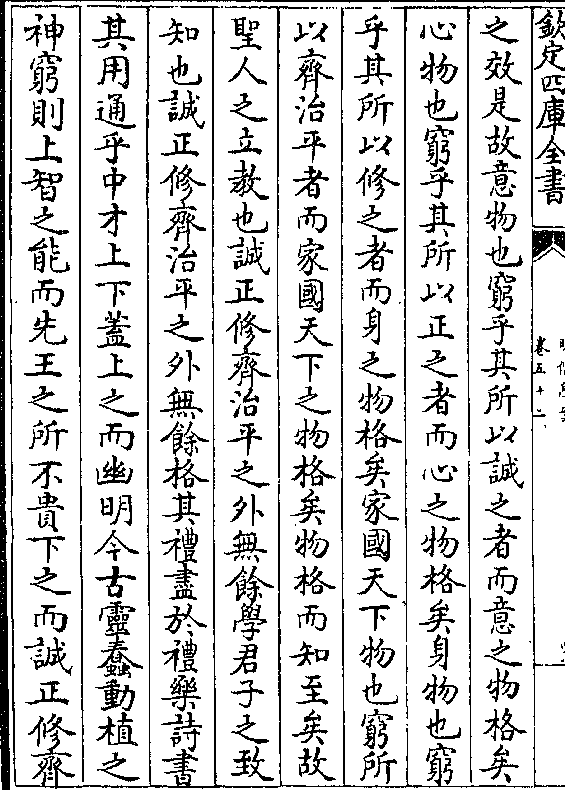 欽定四庫全書
卷五十二
之效是故意物也窮乎其所以誠之者而意之物格矣
心物也窮乎其所以正之者而心之物格矣身物也窮
乎其所以修之者而身之物格矣家國天下物也窮所
以齊治平者而家國天下之物格矣物格而知至矣故
聖人之立教也誠正修齊治平之外無餘學君子之致
知也誠正修齊治平之外無餘格其禮盡於禮樂詩書
其用通乎中才上下蓋上之而幽明今古靈蠢動植之
神窮則上智之能而先王之所不貴下之而誠正修齊